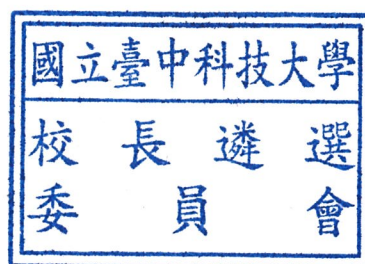 國立臺中科技大學
校長遴選
委員會